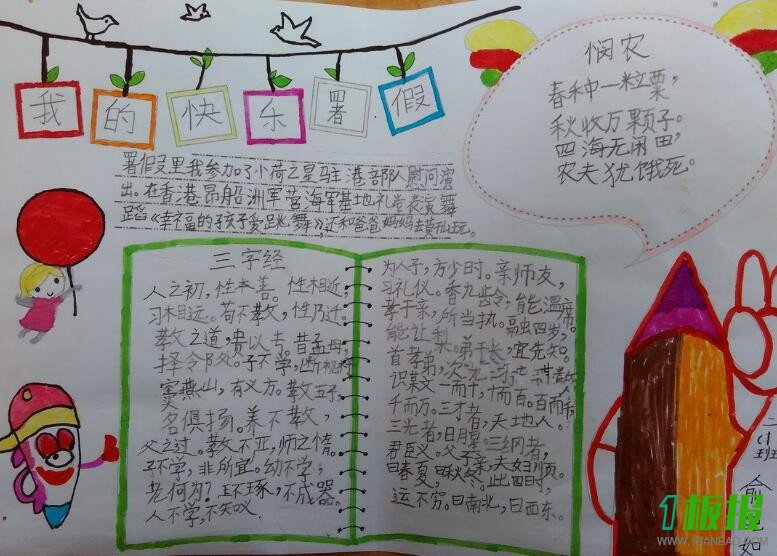 我的快乐署假
署假里我参加了小荷之星驻港部队慰问演
出。在香港昂船洲军营海军基地礼堂表演舞
蹈《幸福的孩子爱跳舞》,还和爸爸妈妈去黄山玩。
悯农
春种一粒粟,
秋收万颗子。
四海无闲田,
农夫犹饿死。
三字经
人之初,性本善。性相近,
习相远。苟不教,性乃迁。
教之道,贵以专。昔孟母,
择邻处。子不学,断机杼
窦燕山,有义方。教五子,
名俱扬。养不教,
父之过。教不严,师之惰。
子不学,非所宜。幼不学,
老何为?玉不琢,不成器。
人不学,不知义
为人子,方少时。亲师友,
习礼仪。香九龄,能温席
孝于亲,所当执。融四岁,
能让梨。弟于长,宜先知。
首孝弟,次见闻
识某文 一而十,十而百。百而千
千而万。三才者,天地人。
三光者,日月星。三纲者,
君臣义。父子亲,夫妇顺。
曰春夏,曰秋冬。此四时,
运不穷。曰南北,曰西东。
二
小
班
俞
如
1板报
WWW.1BANBAO.COM